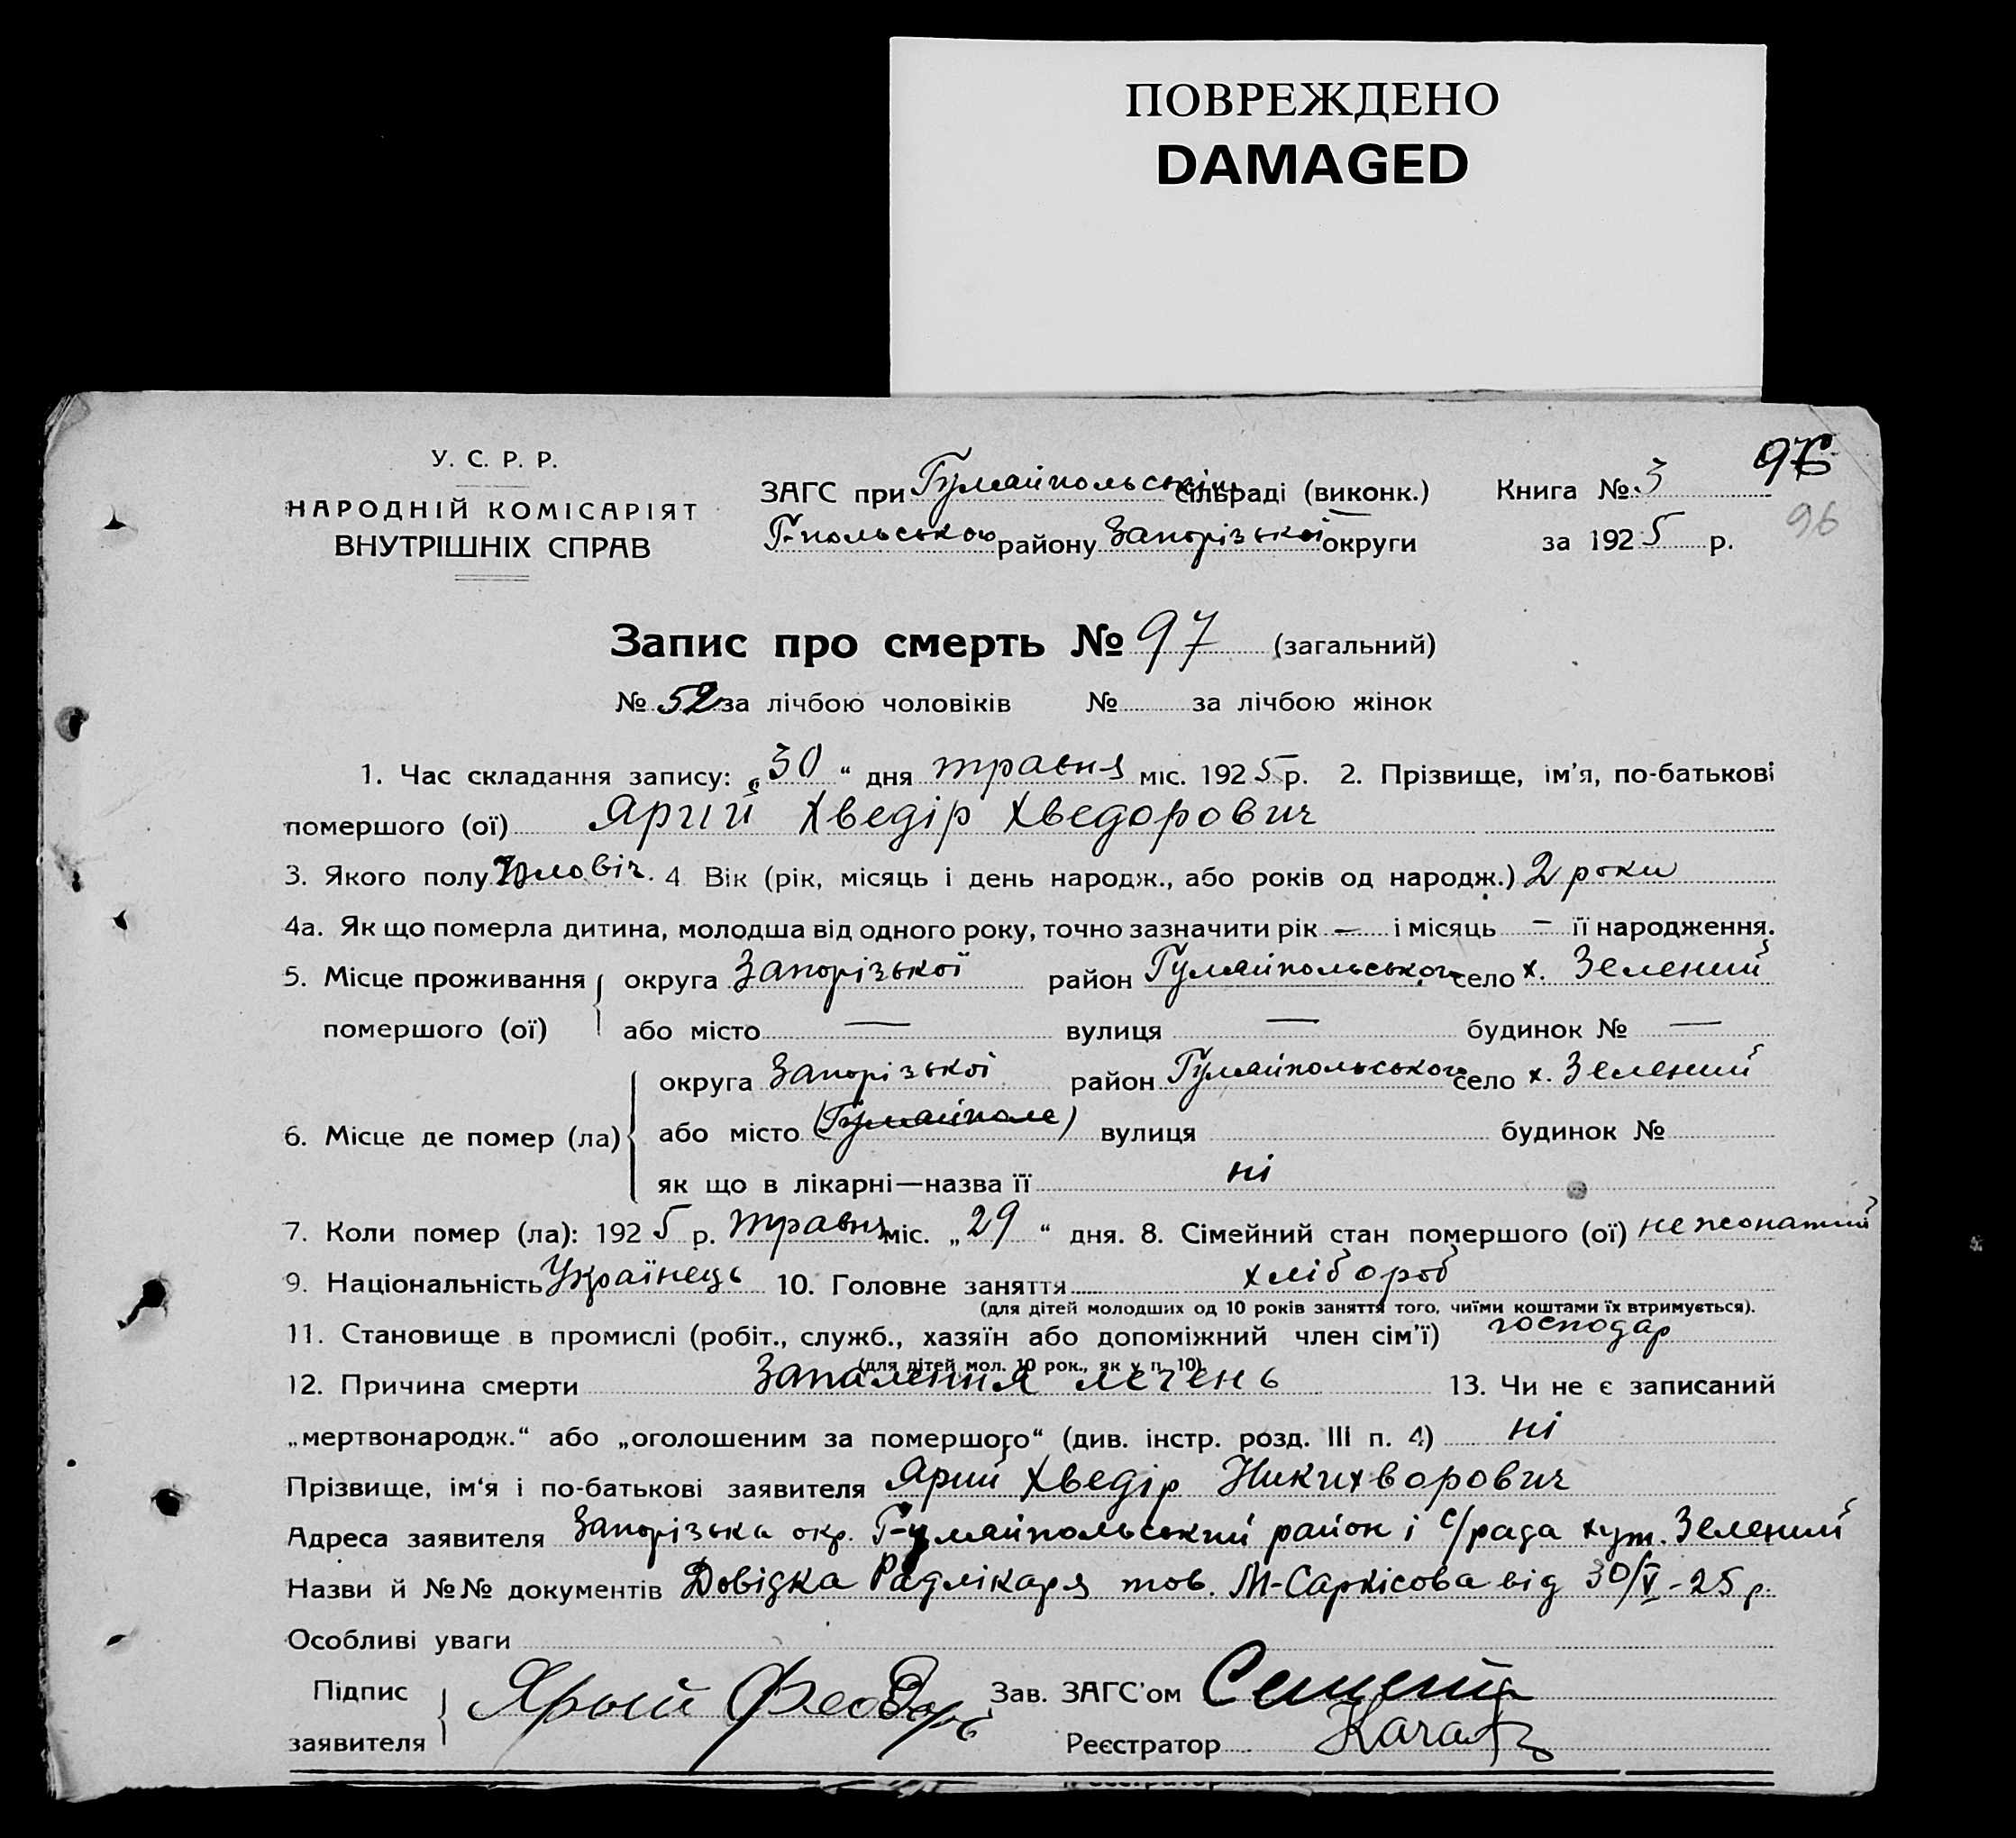 ПОВРЕЖДЕНО
DAMAGED
У. С. Р. Р.
НАРОДНІЙ КОМІСАРІЯТ
ВНУТРІШНІХ СПРАВ
ЗАГС при Гуляйпольській сільраді (виконк.) Книга № 3
96
Г-польського району Запорізької округи за 1925 р.
96
Запис про смерть № 97 (загальний)
№ 52 за лічбою чоловіків № за лічбою жінок
1. Час складання запису: „30“ дня травня міс. 1925 р. 2. Прізвище, ім’я, по-батькові
помершого (ої) Ярий Хведір Хведорович
3. Якого полу чоловіч. 4 Вік (рік, місяць і день народж., або років од народж.) 2 роки
4а. Як що померла дитина, молодша від одного року, точно зазначити рік — і місяць — її народження.
5. Місце проживання округа Запорізької район Гуляйпольського село х. Зелений
помершого (ої) або місто — вулиця — будинок № —
округа Запорізької район Гуляйпольського село х. Зелений
6. Місце де помер (ла) або місто (Гуляйполе) вулиця будинок №
як що в лікарні—назва її ні
7. Коли помер (ла): 1925 р. травня міс. „29“ дня. 8. Сімейний стан помершого (ої) не жонатий
9. Національність Українець 10. Головне заняття хлібороб
(для дітей молодших од 10 років заняття того, чиїми коштами їх втримується).
11. Становище в промислі (робіт., служб., хазяїн або допоміжний член сім’ї) господар
(для дітей мол. 10 рок., як у п. 10).
12. Причина смерти Запалення легень 13. Чи не є записаний
„мертвонародж.“ або „оголошеним за помершого“ (див. інстр. розд. III п. 4) ні
Прізвище, ім‘я і по-батькові заявителя Ярий Хведір Никихворович
Адреса заявителя Запорізька окр. Г-уляйпольський район і с/рада хут. Зелений
Назви й №№ документів Довідка Радлікаря тов. М-Саркісова від 30/V-25 р.
Особливі уваги
Підпис заявителя Ярый Феодоръ Зав. ЗАГС’ом
Реєстратор